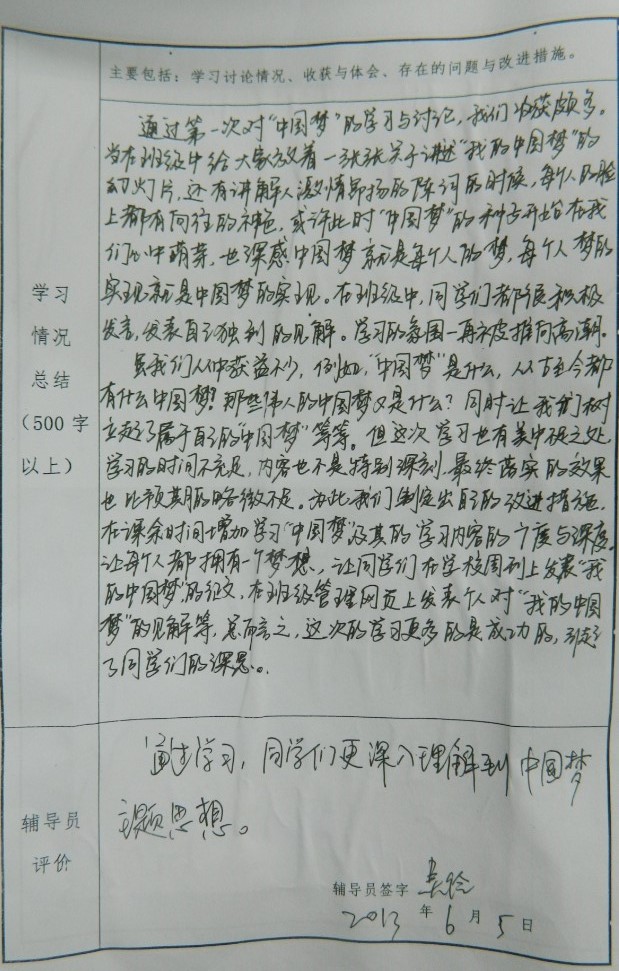 主要包括：学习讨论情况、收获与体会、存在的问题与改进措施。
学习
情况
总结
（500 字
以上）
通过第一次对“中国梦”的学习与讨论，我们收获颇多。
当在班级中给大家放着一张张关于讲述“我的中国梦”的
幻灯片，还有讲解人激情昂扬的陈词的时候，每个人的脸
上都有向往的神色，或许此时“中国梦”的种子开始在我
们心中萌芽，也深感中国梦就是每个人的梦，每个人梦的
实现就是中国梦的实现。在班级中，同学们都积极
发言，发表自己独到的见解。学习的氛围一再被推向高潮。
我们从中获益不少，例如，“中国梦”是什么，从古至今都
有什么中国梦？那些伟人的中国梦又是什么？同时让我们树
立起了属于自己的“中国梦”等等。但这次学习也有美中不足之处，
学习的时间不充足，内容也不是特别深刻，最终落实的效果
也比预期的略微不足。为此我们制定出自己的改进措施，
在课余时间增加学习“中国梦”及其的学习内容的广度与深度。
让每个人都拥有一个梦想，让同学们在学校周刊上发表“我
的中国梦”的征文，在班级管理网页上发表个人对“我的中国
梦”的见解等，总而言之，这次的学习更多的是成功的，引起
了同学们的深思。
辅导员
评价
通过学习，同学们更深入理解到中国梦
主题思想。
辅导员签字
2013 年 6 月 5 日